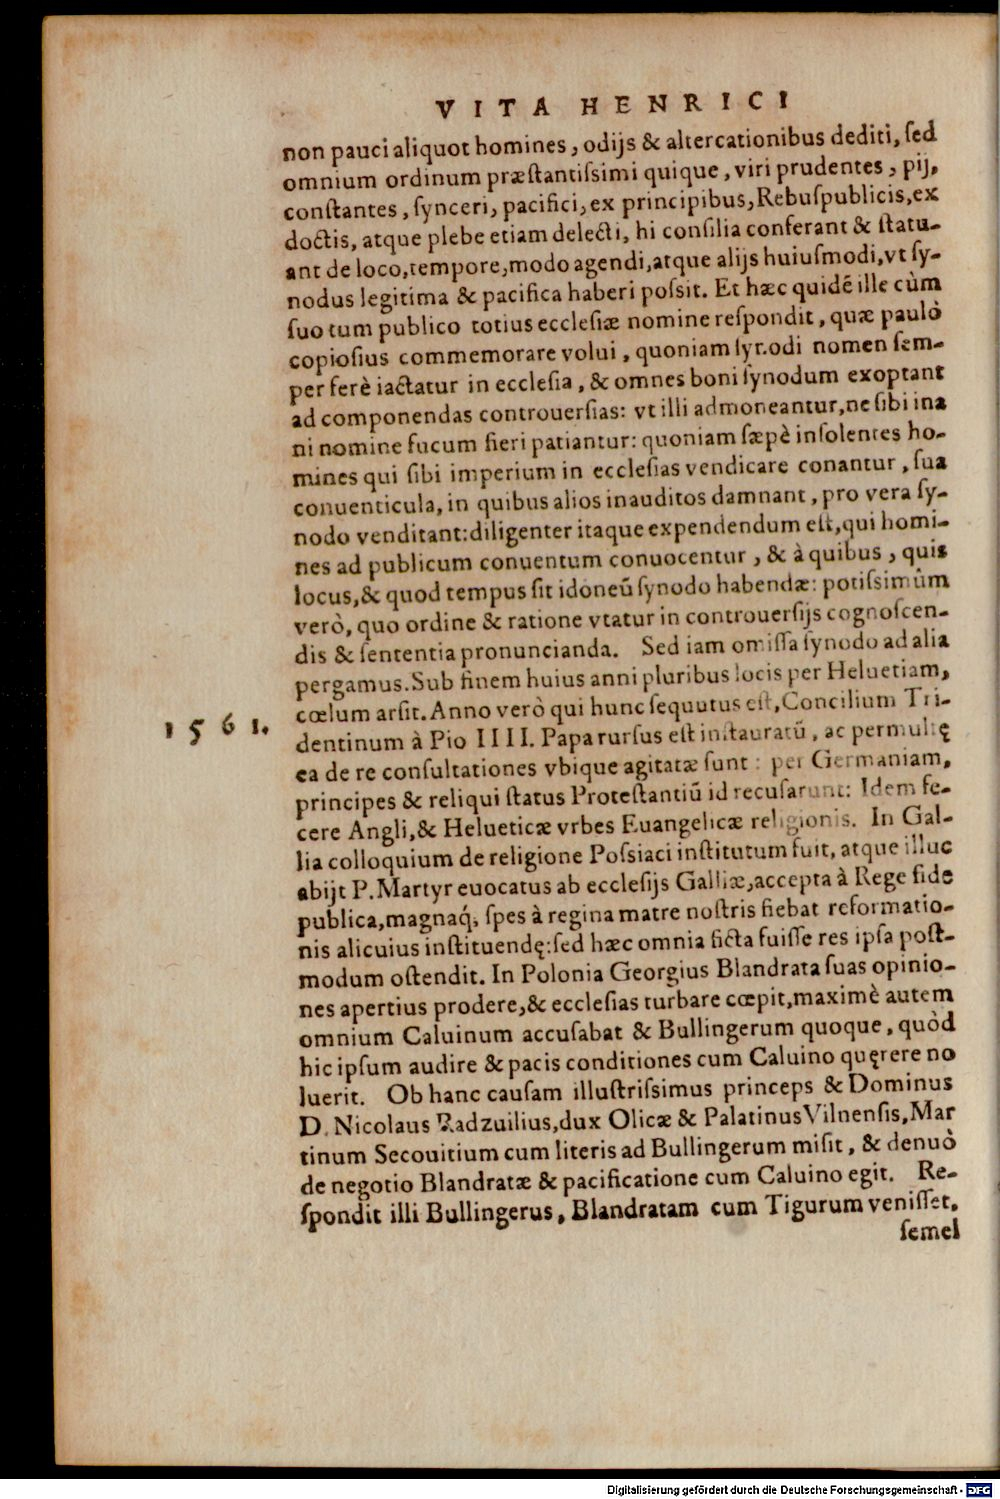 VITA HENRICI
non pauci aliquot homines, odijs & altercationibus dediti, ſed
omnium ordinum præſtantiſsimi quique, viri prudentes, pij,
conſtantes, ſynceri, pacifici, ex principibus, Rebuſpublicis, ex
doctis, atque plebe etiam delecti, hi conſilia conferant & ſtatu-
ant de loco, tempore, modo agendi, atque alijs huiuſmodi, vt ſy-
nodus legitima & pacifica haberi poſsit. Et hæc quidẽ ille cùm
ſuo tum publico totius eccleſiæ nomine reſpondit, quæ paulò
copioſius commemorare volui, quoniam ſynodi nomen ſem-
per ferè iactatur in eccleſia, & omnes boni ſynodum exoptant
ad componendas controuerſias: vt illi admoneantur, ne ſibi ina
ni nomine fucum fieri patiantur: quoniam ſæpè inſolentes ho-
mines qui ſibi imperium in eccleſias vendicare conantur, ſua
conuenticula, in quibus alios inauditos damnant, pro vera ſy-
nodo venditant: diligenter itaque expendendum eſt, qui homi-
nes ad publicum conuentum conuocentur, & à quibus, quis
locus, & quod tempus ſit idoneũ ſynodo habendæ: potiſsimûm
verò, quo ordine & ratione vtatur in controuerſijs cognoſcen-
dis & ſententia pronuncianda. Sed iam omiſſa ſynodo ad alia
pergamus. Sub finem huius anni pluribus locis per Heluetiam,
cœlum arſit. Anno verò qui hunc ſequutus eſt, Concilium Tri-
1561.
dentinum à Pio IIII. Papa rurſus eſt inſtauratũ, ac permultę
ea de re conſultationes vbique agitatæ ſunt: per Germaniam,
principes & reliqui ſtatus Proteſtantiũ id recuſarunt: Idem fe-
cere Angli, & Helueticæ vrbes Euangelicæ religionis. In Gal-
lia colloquium de religione Poſsiaci inſtitutum fuit, atque illuc
abijt P. Martyr euocatus ab eccleſijs Galliæ, accepta à Rege fide
publica, magnaq́; ſpes à regina matre noſtris fiebat reformatio-
nis alicuius inſtituendę: ſed hæc omnia ficta fuiſſe res ipſa poſt-
modum oſtendit. In Polonia Georgius Blandrata ſuas opinio-
nes apertius prodere, & eccleſias turbare cœpit, maximè autem
omnium Caluinum accuſabat & Bullingerum quoque, quòd
hic ipſum audire & pacis conditiones cum Caluino quęrere no
luerit. Ob hanc cauſam illuſtriſsimus princeps & Dominus
D. Nicolaus Radzuilius, dux Olicæ & Palatinus Vilnenſis, Mar
tinum Secouitium cum literis ad Bullingerum miſit, & denuò
de negotio Blandratæ & pacificatione cum Caluino egit. Re-
ſpondit illi Bullingerus, Blandratam cum Tigurum veniſſet,
ſemel
Digitalisierung gefördert durch die Deutsche Forschungsgemeinschaft - DFG